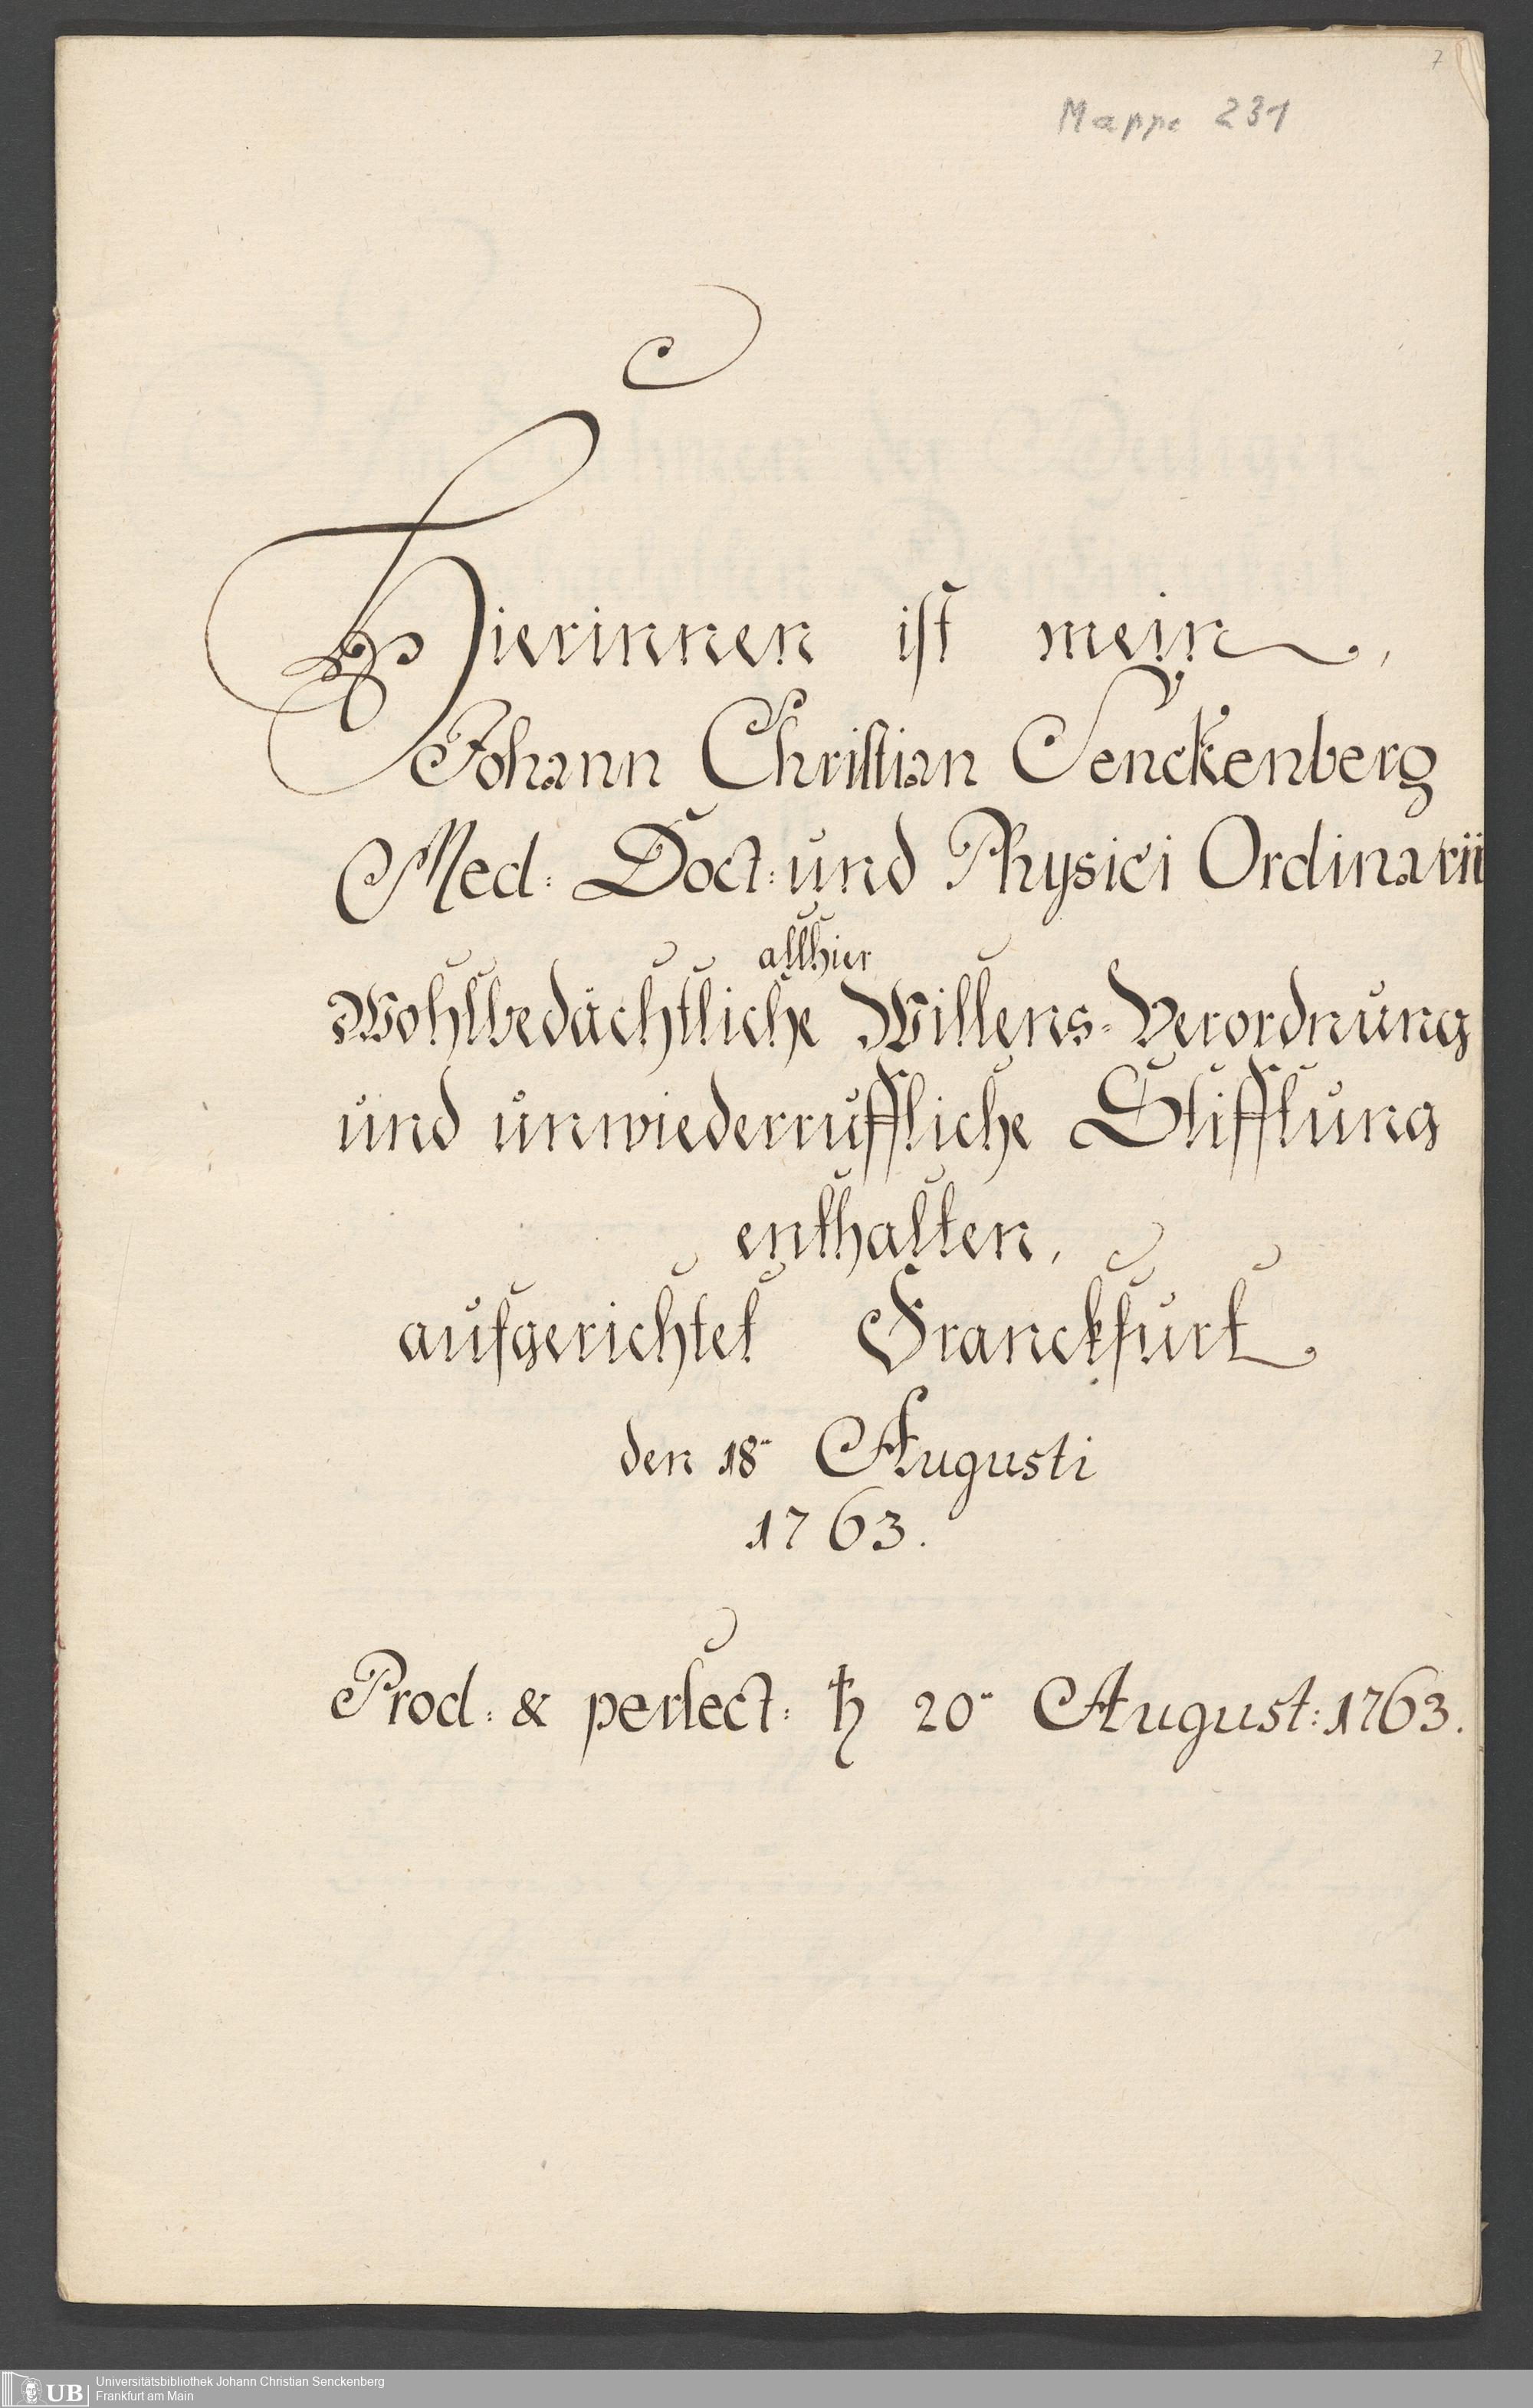 7
Mappe 231
Hierinnen ist mein,
Johann Christian Senckenberg
Med: Doct: und Physici Ordinarii
allhier
Wohlbedächtliche Willens-Verordnung
und unwiederruffliche Stifftung
enthalten,
aufgerichtet Franckfurt
den 18ᵗᵉⁿ Augusti
1763.
Prod: & perfect: ♄ 20ᵗᵉⁿ August: 1763.
UB
Universitätsbibliothek Johann Christian Senckenberg
Frankfurt am Main